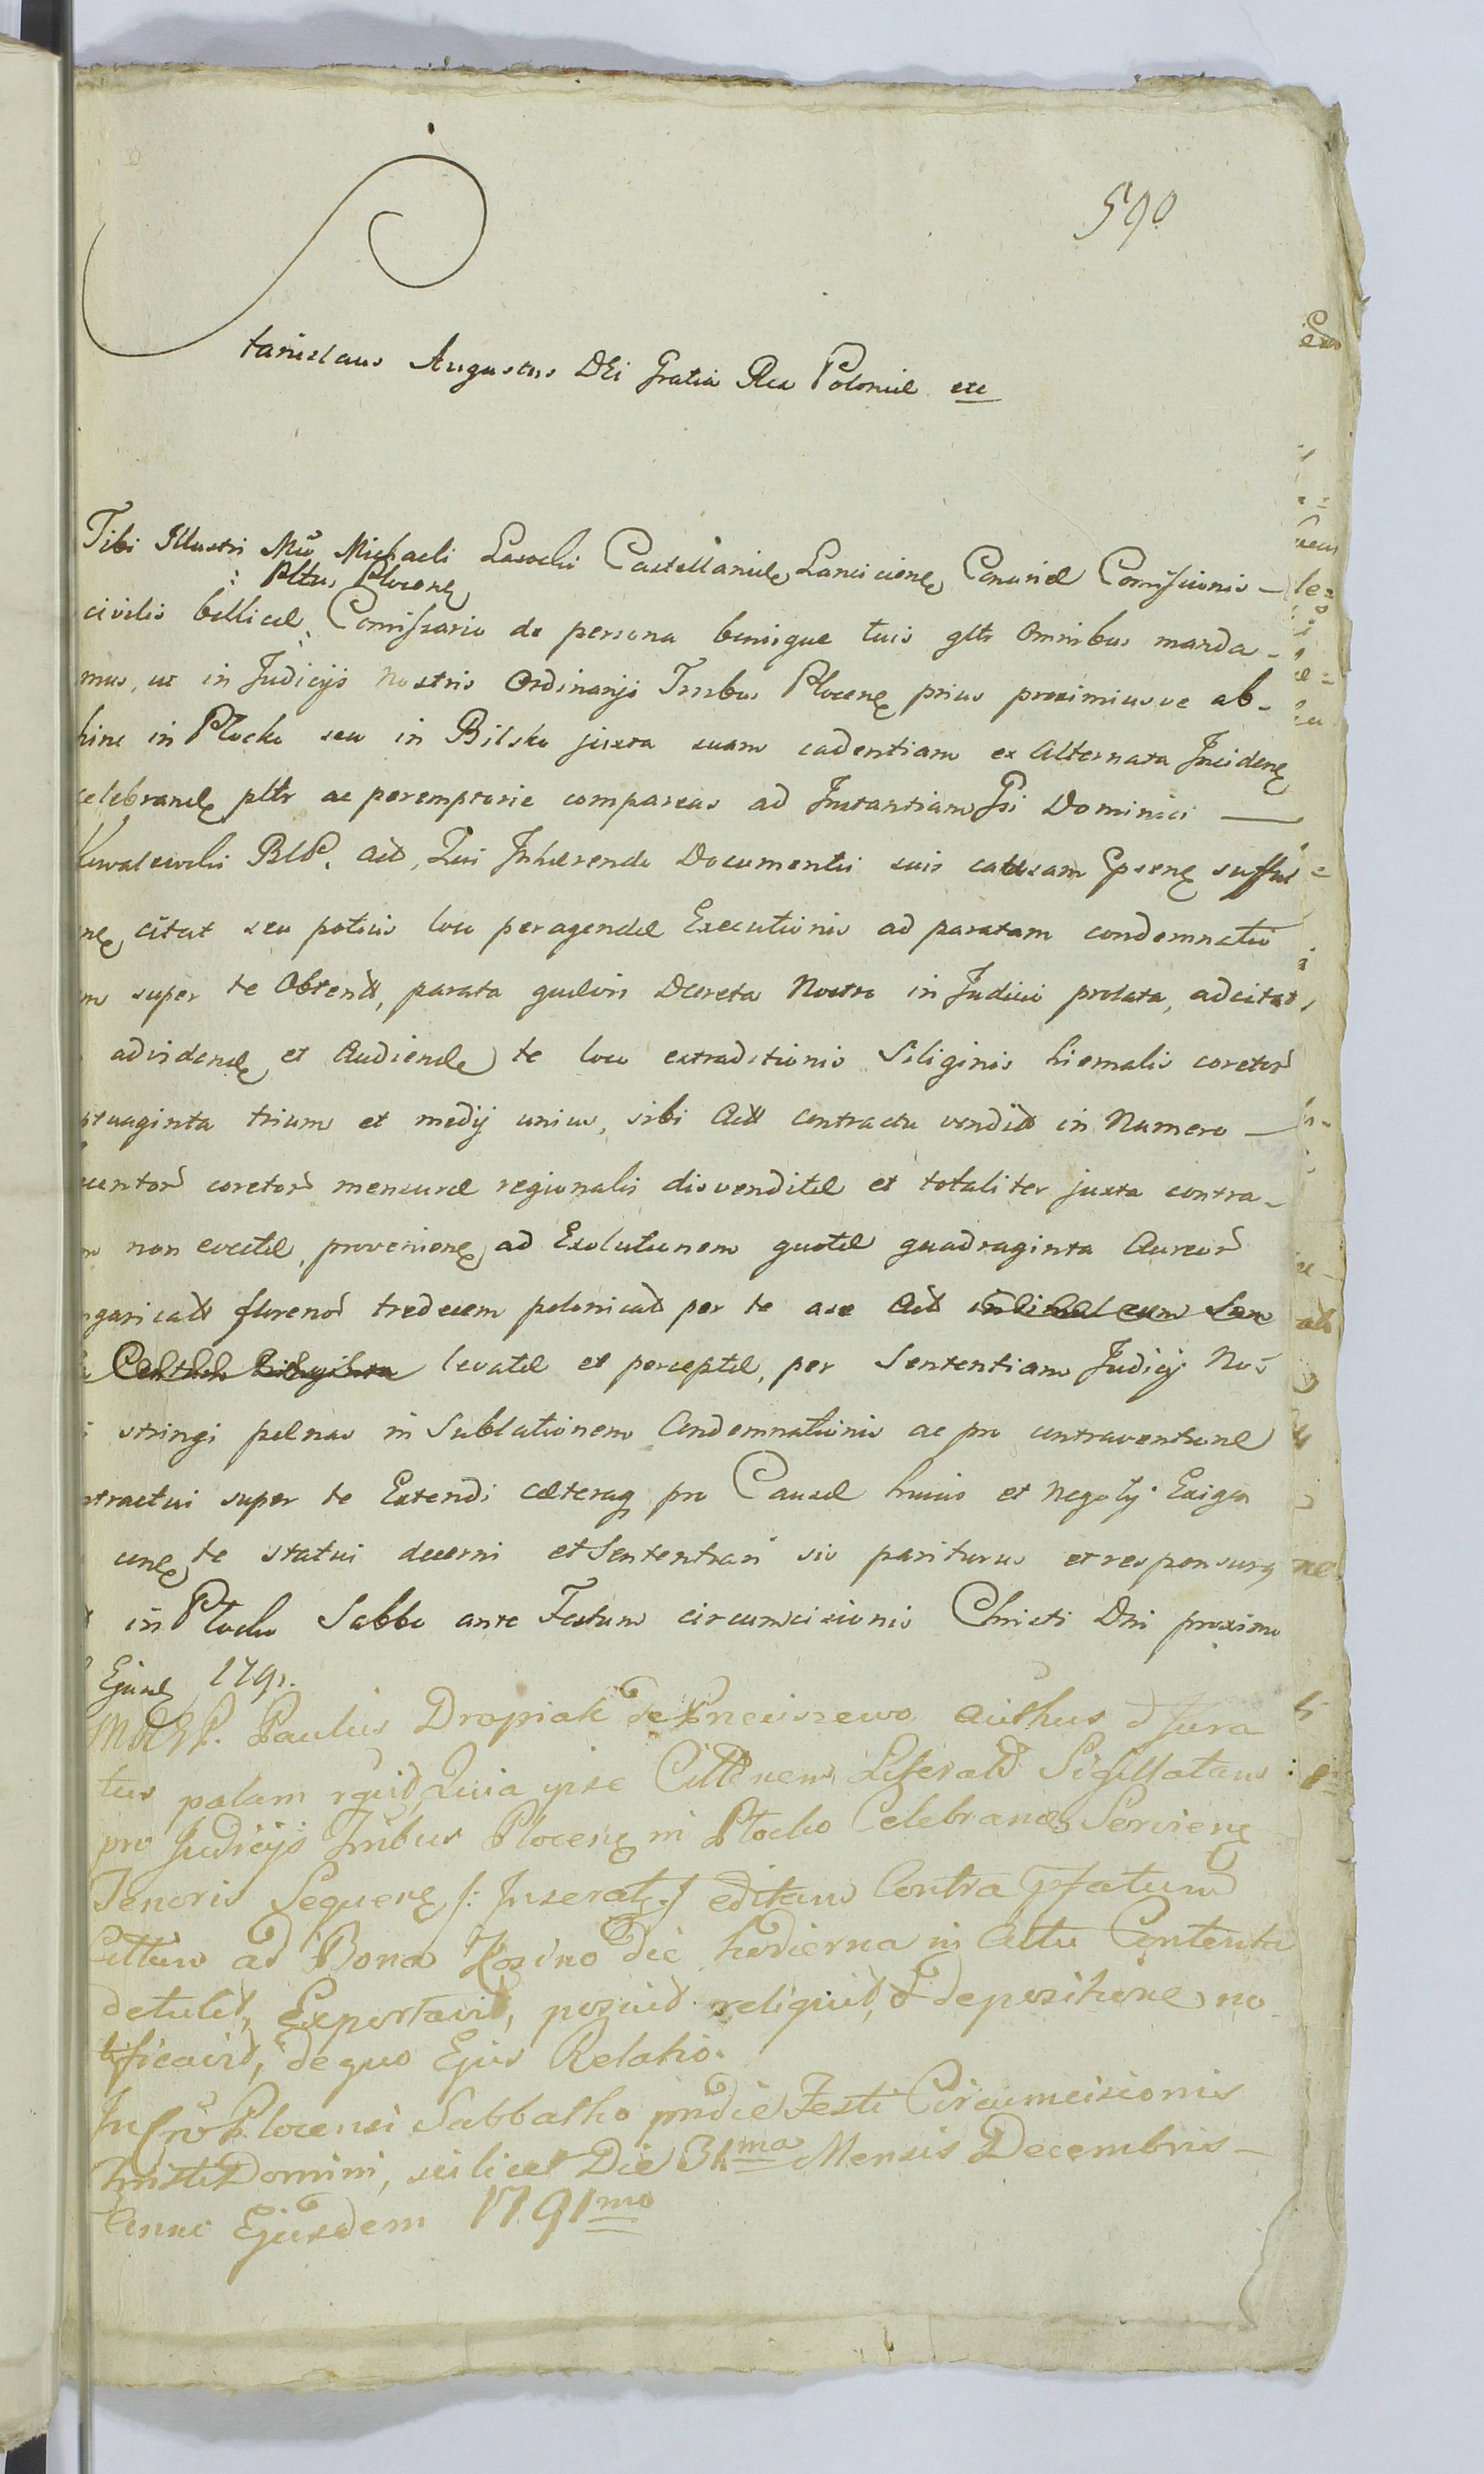 590
Stanislaus Augustus DEi Gratia Rex Poloniæ etc
Tibi Illustri Mco Michaeli Lasocki Castellanidæ Lancicienę Conuriæ Comissionis —
: Pltus Plocenę
civilis bellicæ, Comissario de persona bonisque tuis gltr Omnibus manda-
mus, ut in Judicijs Nostris Ordinarijs Trrbus Plocenę prius proximiusve ab-
hinc in Plocko seu in Bilsko juxta suam cadentiam ex Alternata Incidenę
celebrandę pltr ac peremptorie compareas ad Instantiam Gsi Dominici —
Kowalewski BLP. Act, Qui Inhærendo Documentis suis causam Epsenę sufful
nę citat seu potius loco peragendæ Executionis ad paratam condemnatio
m super te Obtent, parata quævis Decreta Nostro in Judicio prolata, adcitat
advidendę et Audiendę te loco extraditionis Siliginis hiemalis coretor
ptuaginta trium et medij unius, sibi Act contractu vendit in Numero —
centor coretor mensuræ regionalis disvenditæ et totaliter juxta contra-
m non evectæ, provenienę ad Exolutionem quotæ quadraginta Aureor
ngaricał florenor tredecem polonical per te a se Act
levatæ et perceptæ, per Sententiam Judicij No-
stringi pœnas in Sublationem Condemnationis ac pro contraventione
ntractui super te Extendi cæteraq pro Causæ huius et Negotij Exigen
cunę te statui decerni et Sententiari sis pariturus et responsurg
in Plocko Sabbo ante Festum circumcisionis Christi Dni proximo
Ejusd 1791.
Paulus Dropiak de authus & Jura
tus palam rquid, Quia ipse Cittõnem Literatõ Sigillatam
pro Judicijs Trribus Plocenę in Plocko Celebrandę Servienę
Tenoris Sequenę /: Inseratę :/ editam Contra Pfatum
Cittum ad Bona Kosino die hodierna in Actu Contenta
detulit, Exportavit, posuit reliquit, & depositione no-
tificavit, de quo Ejus Relatio.
In Cro Plocensi Sabbatho pridie Festi Circumcisionis
Christi Domini, scilicet Die 31ma Mensis Decembris —
Anni Ejusdem 1791mo